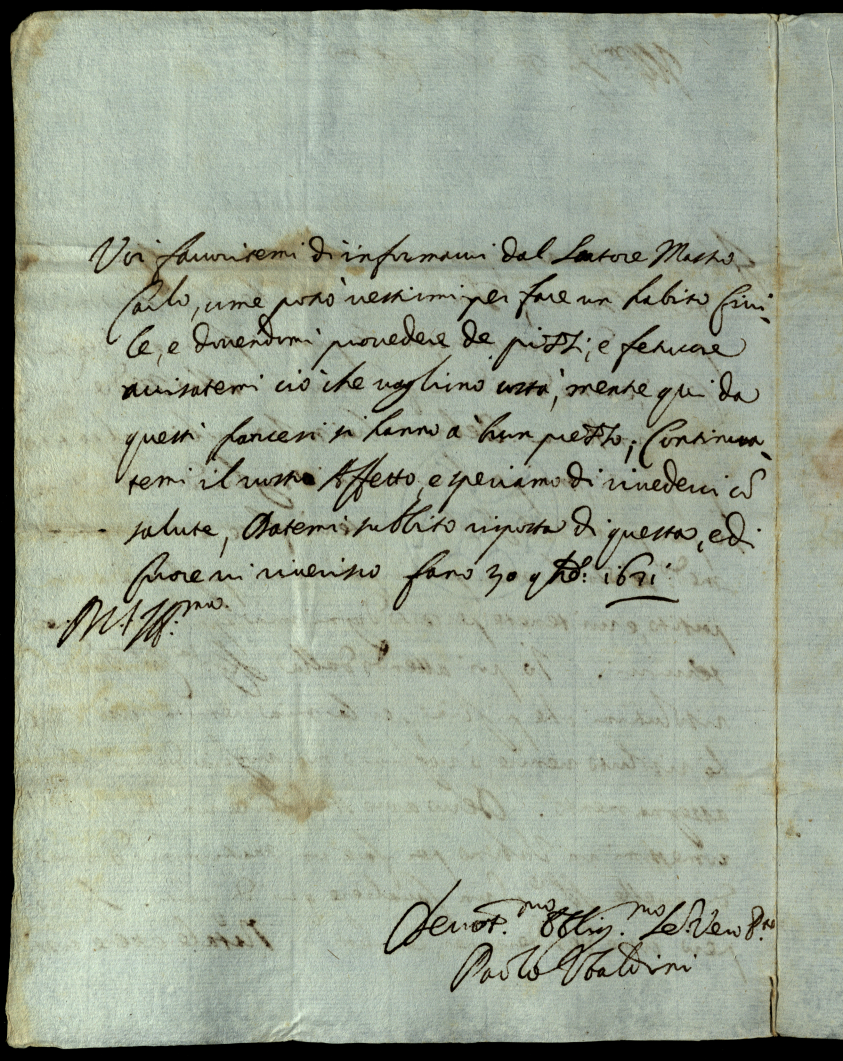 Voi fauoritemi di informarui dal Sartore Mastro
Carlo, come potrò uestirmi per fare un habito Ciui-
le, e douendomi prouedere de pizzi, e fetucce
auisatemi ciò che uaglino costà, mentre qui da
questi francesi si hanno à bun prezzo; Continua-
temi il uostro Affetto, e speriamo di riuederci cõ
salute, Datemi subbito risposta di questa, e di
cuore ui riuerisco fano 30 9bre: 1671
Devot.mo Oblig.mo Se Vero
Paolo Vbaldini